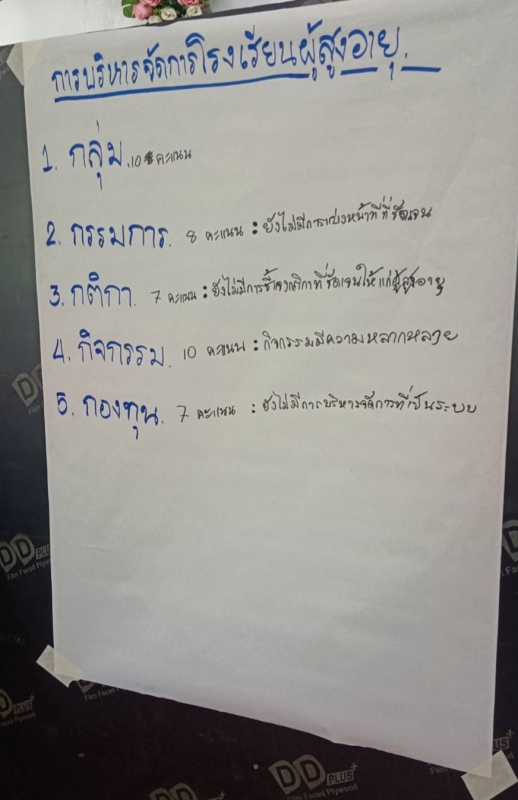 การบริหารจัดการโรงเรียนผู้สูงอายุ.
1. กลุ่ม. 10 คะแนน
2. กรรมการ. 8 คะแนน : ยังไม่มีการแบ่งหน้าที่ที่ชัดเจน
3. กติกา. 7 คะแนน : ยังไม่มีการชี้แจงกติกาที่ชัดเจนให้แก่ผู้สูงอายุ
4. กิจกรรม. 10 คะแนน : กิจกรรมมีความหลากหลาย
5. กองทุน. 7 คะแนน : ยังไม่มีการบริหารจัดการที่เป็นระบบ
DD PLUS+
Film Faced Plywood
DD PLUS+
Film Faced Plywood
DD PLUS+
Film Faced Plywood